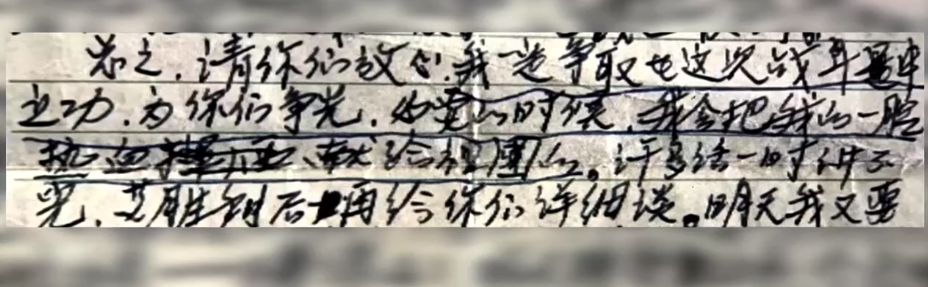 总之,请你们放心.我一定争取在这次战斗中
立功.为你们争光.必要的时候.我会把我的一腔
热血献给祖国的。许多话一时讲不
完.艾胜利后再给你们详细谈。明天我又要